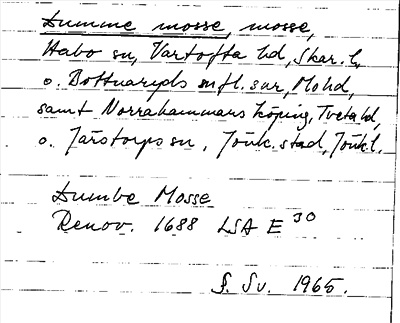 Dumme mosse, mosse,
Habo sn, Vartofta hd, Skar. l,
o. Bottnaryds smfl. sn, Mo hd,
samt Norrahammars köping, Tveta hd,
o. Järstorps sn, Jönk. stad, Jönk. l.
Dumbe Mosse
Renov. 1688 LSA E 30
S. Sv. 1965.